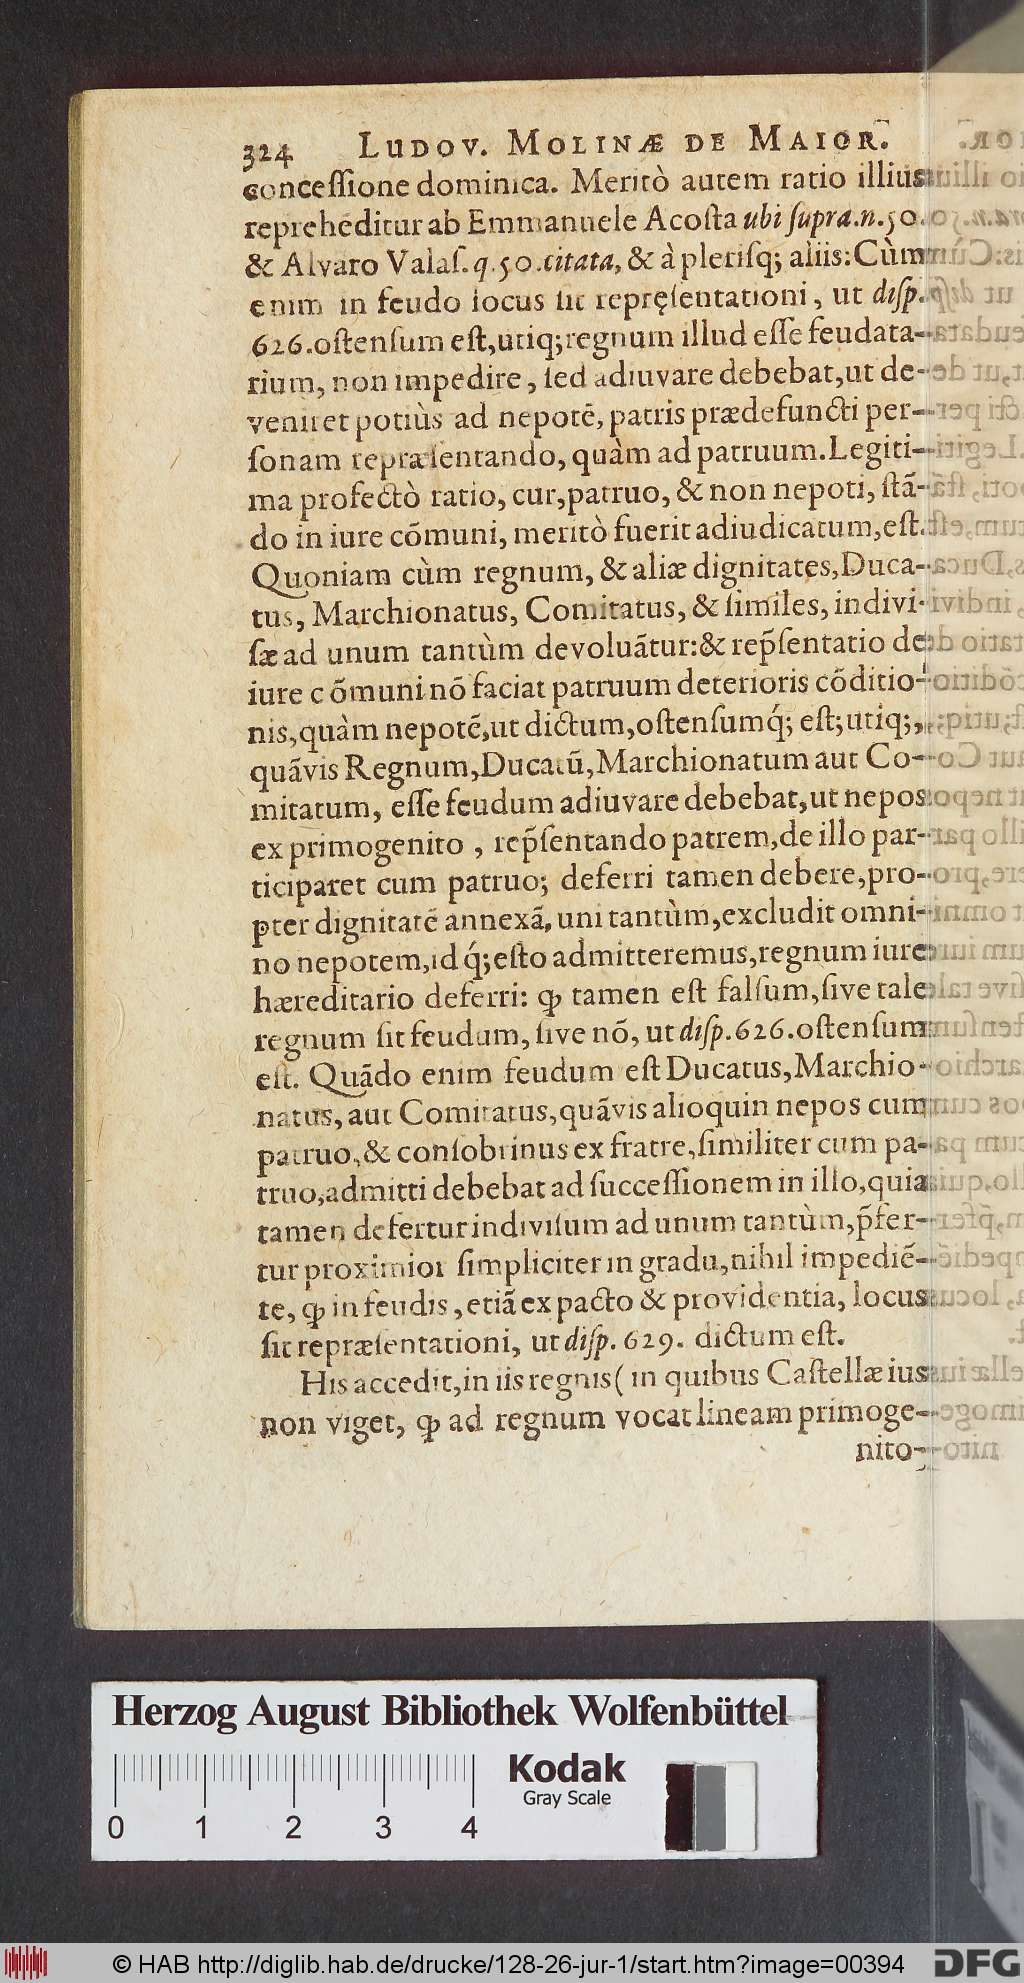 324 LUDOV. MOLINÆ DE MAIOR.
conceſſione dominica. Meritò autem ratio illius
reprehēditur ab Emmanuele Acoſta ubi ſupra.n.50.
& Alvaro Valaſ. q.50.citata, & à pleriſq; aliis: Cùm
enim in feudo locus ſit repręſentationi, ut diſp.
626. oſtenſum eſt, utiq; regnum illud eſſe feudata-
rium, non impedire, ſed adiuvare debebat, ut de-
veniret potiùs ad nepotē, patris prædefuncti per-
ſonam repræſentando, quàm ad patruum. Legiti-
ma profectò ratio, cur, patruo, & non nepoti, ſtā-
do in iure cōmuni, meritò fuerit adiudicatum, eſt.
Quoniam cùm regnum, & aliæ dignitates, Duca-
tus, Marchionatus, Comitatus, & ſimiles, indivi-
ſæ ad unum tantùm devoluātur: & rep̄ſentatio de
iure cōmuni nō faciat patruum deterioris cōditio-
nis, quàm nepotē, ut dictum, oſtenſumq́; eſt; utiq;,
quāvis Regnum, Ducatū, Marchionatum aut Co-
mitatum, eſſe feudum adiuvare debebat, ut nepos
ex primogenito, rep̄ſentando patrem, de illo par-
ticiparet cum patruo; deferri tamen debere, pro-
pter dignitatē annexā, uni tantùm, excludit omni-
no nepotem, id q́; eſto admitteremus, regnum iure
hæreditario deferri: ꝙ tamen eſt falſum, ſive tale
regnum ſit feudum, ſive nō, ut diſp. 626. oſtenſum
eſt. Quādo enim feudum eſt Ducatus, Marchio-
natus, aut Comitatus, quāvis alioquin nepos cum
patruo, & conſobrinus ex fratre, ſimiliter cum pa-
truo, admitti debebat ad ſucceſſionem in illo, quia
tamen defertur indiviſum ad unum tantùm, p̄fer-
tur proximior ſimpliciter in gradu, nihil impediē-
te, ꝙ in feudis, etiā ex pacto & providentia, locus
ſit repræſentationi, ut diſp. 629. dictum eſt.
His accedit, in iis regnis ( in quibus Caſtellæ ius
non viget, ꝙ ad regnum vocat lineam primoge-
nito-
Herzog August Bibliothek Wolfenbüttel
Kodak
Gray Scale
0 1 2 3 4
© HAB http://diglib.hab.de/drucke/128-26-jur-1/start.htm?image=00394
DFG